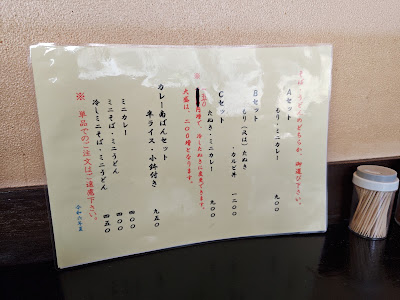 そば・うどんのどちらか、御選び下さい。
Aセット
もり・ミニカレー 九〇〇
Bセット
もり(又は)たぬき・カルビ丼 一二〇〇
Cセット
たぬき・ミニカレー 九〇〇
※ 五〇円増で、冷したぬきに変更できます。
大盛は、二〇〇増となります。
カレー南ばんセット
半ライス・小鉢付き 九五〇
ミニカレー 四〇〇
ミニそば・ミニうどん 四〇〇
冷しミニそば・ミニうどん 四五〇
※ 単品でのご注文はご遠慮下さい。